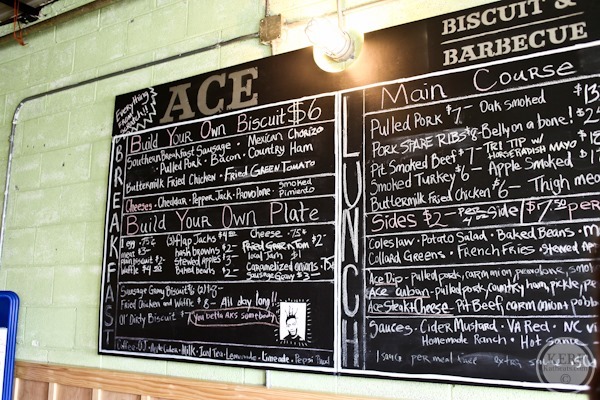 BISCUIT &
BARBECUE
Everything
ACE
BREAKFAST
Build Your Own Biscuit $6
Southern Breakfast Sausage · Mexican Chorizo
Pulled Pork · Bacon · Country Ham
Buttermilk Fried Chicken · Fried Green Tomato
Cheeses · Cheddar · Pepper Jack · Provolone · Smoked Pimiento
Build Your Own Plate
1 egg .75¢ (3) Flap Jacks $4 Cheese .75¢
meat $3 hash browns $2 Fried Green Tom $2
plain biscuit $2 Stewed Apples $3 local Jam $1
Waffle $4 baked beans $2 Caramelized onions
Sausage Gravy $3
Sausage Gravy Biscuits (2) $8
Fried Chicken and Waffle $8 All day long!!
Ol' Dirty Biscuit $7 You betta aks somebody
Coffee · OJ · Apple Cider · Milk · Iced Tea · Lemonade · Limeade · Pepsi
LUNCH
Main Course
Pulled Pork $7 Oak smoked
PORK SPARE RIBS $8 Belly on a bone!
Pit Smoked Beef $7 TRI TIP w/ HORSERADISH MAYO
Smoked Turkey $6 Apple Smoked
Buttermilk Fried Chicken $6 Thigh meat
Sides $2 PER 4oz Side $7.50 per
Coleslaw · Potato Salad · Baked Beans
Collard Greens · French Fries · Stewed
Ace Dip · Pulled pork, carm onion, provolone, smoky
Ace Cuban · Pulled pork, country ham, pickle,
Ace Steak + Cheese · Pit Beef, carm onion + pobla
Sauces · Cider Mustard · VA Red · NC
Homemade Ranch · Hot Sauce
1 sauce per meal free extra